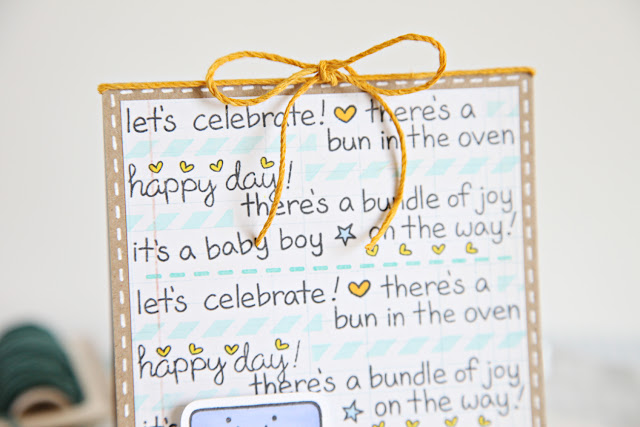 let's celebrate! there's a
bun in the oven
happy day!
there's a bundle of joy
it's a baby boy on the way!
let's celebrate! there's a
bun in the oven
happy day!
there's a bundle of joy
on the way!